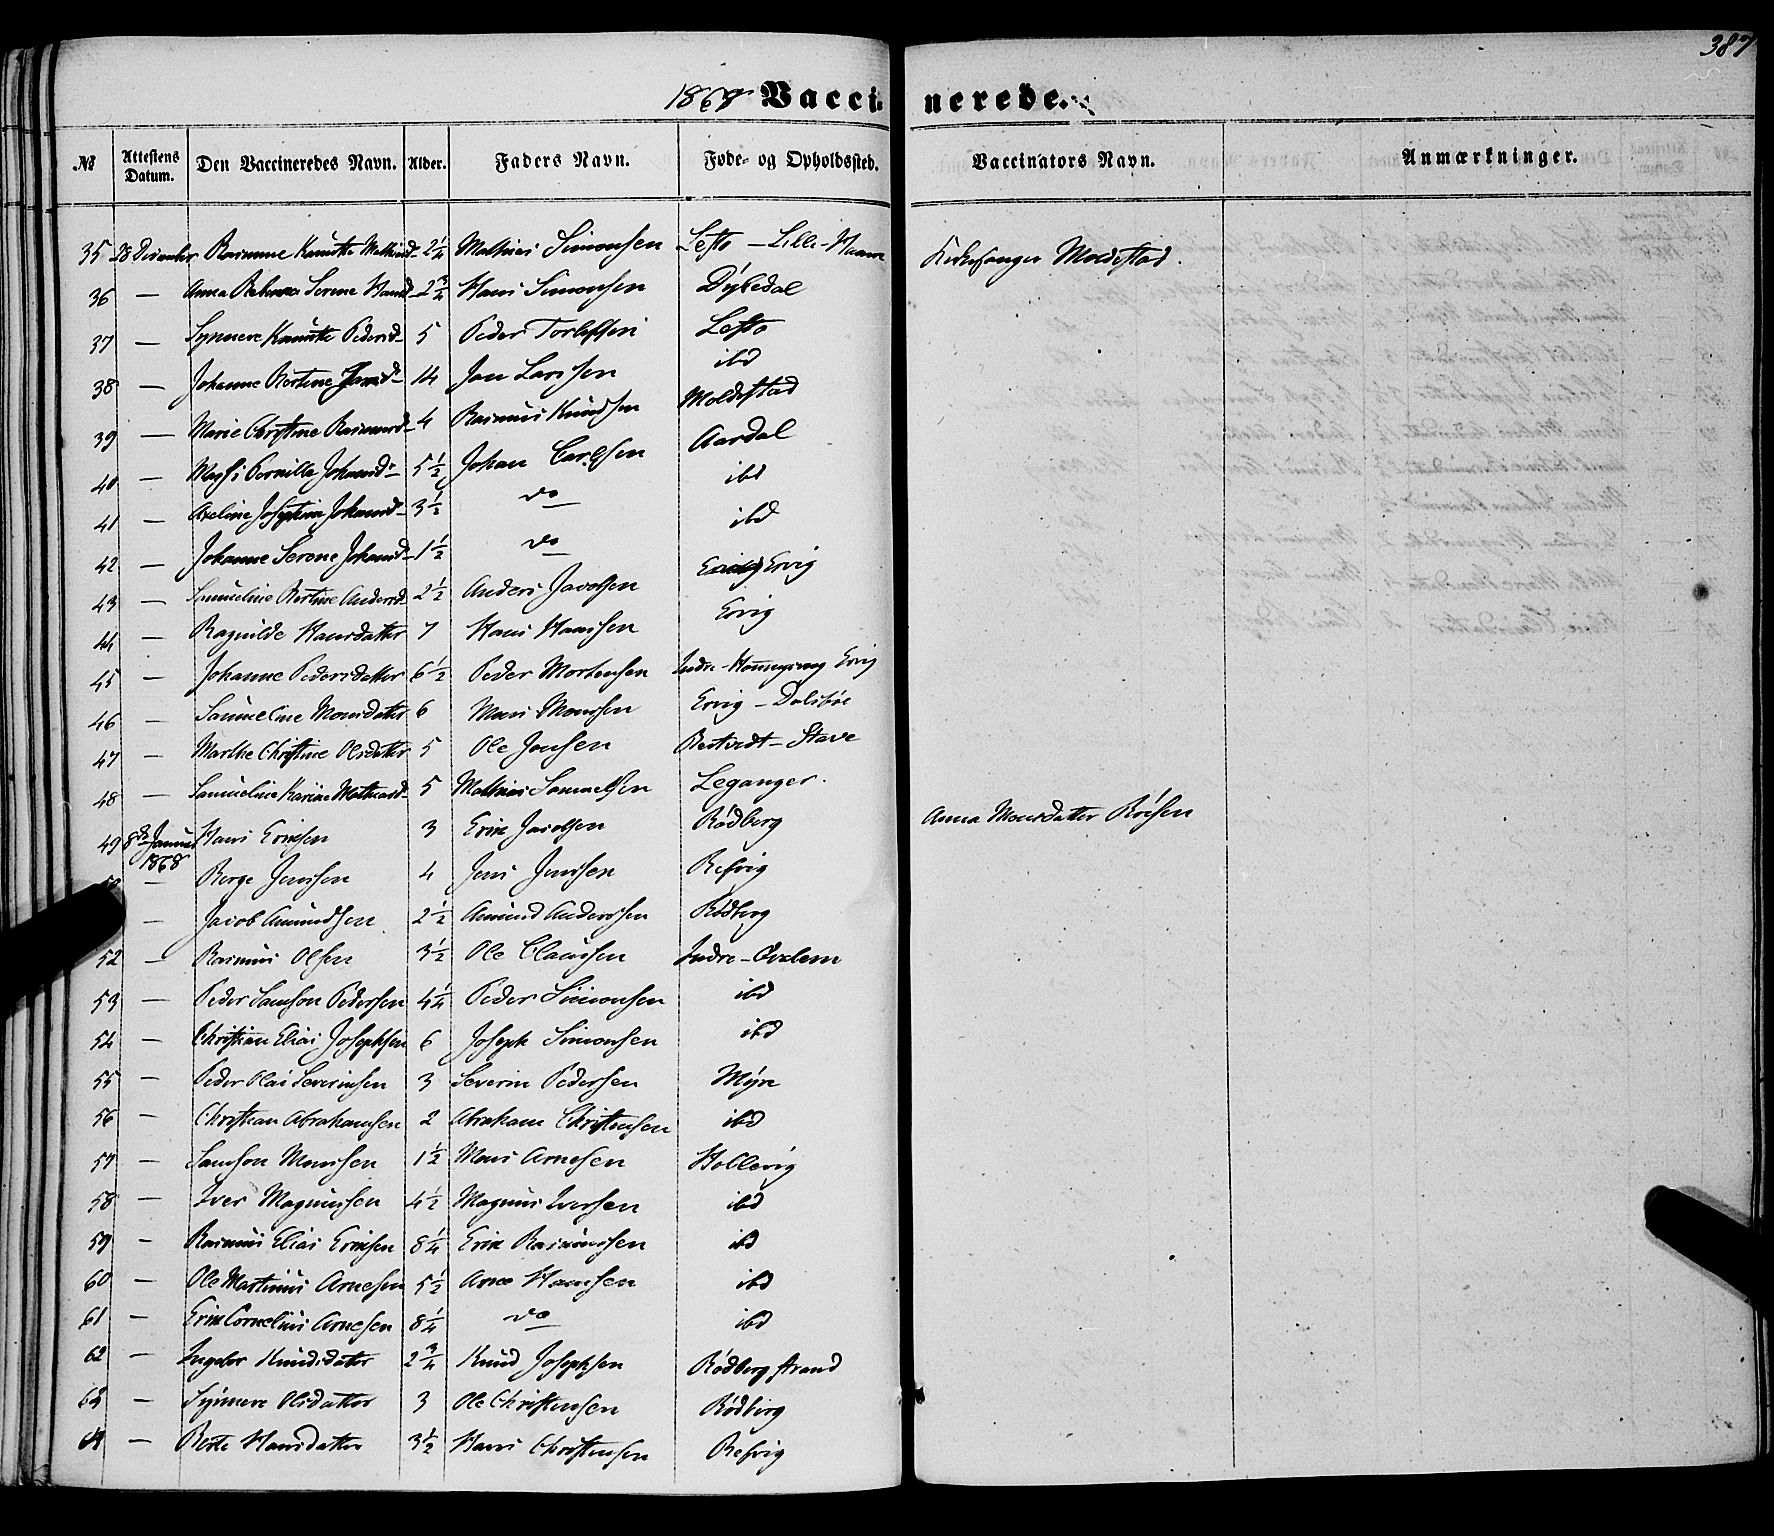 387
1868 Vaccinerede.
№ Attestens Datum. Den Vaccineredes Navn. Alder. Faders Navn. Føde- og Opholdssted. Vaccinators Navn. Anmærkninger.
35 28 December Rasmine Mathiasd 2¼ Mathias Simonsen Lefto – Lille- Kirkesanger Moldestad.
36 — Anna Serene Hansd 2¾ Hans Simonsen Dybedal
37 — Synneve Pedersd 5 Peder Lefto
38 — Johanne Bertine Jansd 14 Jan Larssen ibd
39 — Marie Christine Rasmusd 4 Rasmus Knudsen Moldestad
40 — Pernille Johansd 5½ Johan Carlsen Aardal
41 — Axeline Josephine Johansd 3½ do ibd
42 — Johanne Serene Johansd 1½ do ibd
43 — Samueline Bertine Andersd 2½ Anders Jacobsen Ervig
44 — Ragnilde Hansdatter 7 Hans Hanssen Ervig
45 — Johanne Pedersdatter 6½ Peder Mortensen Indre- Ervig
46 — Samueline Monsdatter 6 Mons Monssen Ervig – Dalsbøe
47 — Marthe Christine Olsdatter 5 Ole Jonsen – Stave
48 — Samueline Karine Mathiasd 5 Mathias Samuelsen Leganger.
49 8de Januar 1868 Hans Eriksen 3 Erik Jacobsen Rødberg Anna Monsdatter
— Berge Jenssen 4 Jens Jenssen Refvig
— Jacob Amundsen 2½ Amund Anderssen Rødberg
52 — Rasmus Olsen 3½ Ole Claussen Indre-
53 — Peder Samson Pedersen 4¼ Peder Simonsen ibd
54 — Christian Elias Josephsen 6 Joseph Simonsen ibd
55 — Peder Olai Severinsen 3 Severin Pedersen Myre
56 — Christian Abrahamsen 2 Abraham Christensen ibd
57 — Samson Monssen 1½ Mons Arnesen Hollevig
58 — Iver Magnussen 4½ Magnus Iversen ibd
59 — Rasmus Elias Eriksen 8¼ Erik Rasmussen ibd
60 — Ole Martinus Arnesen 5½ Arne Hansen ibd
61 — Erik Cornelius Arnesen 8¼ do ibd
62 — Ingebor Knudsdatter 2¾ Knud Josephsen Rødberg strand
63 — Synneve Olsdatter 3 Ole Christensen Rødberg
64 — Berte Hansdatter 3½ Hans Christensen Refvig